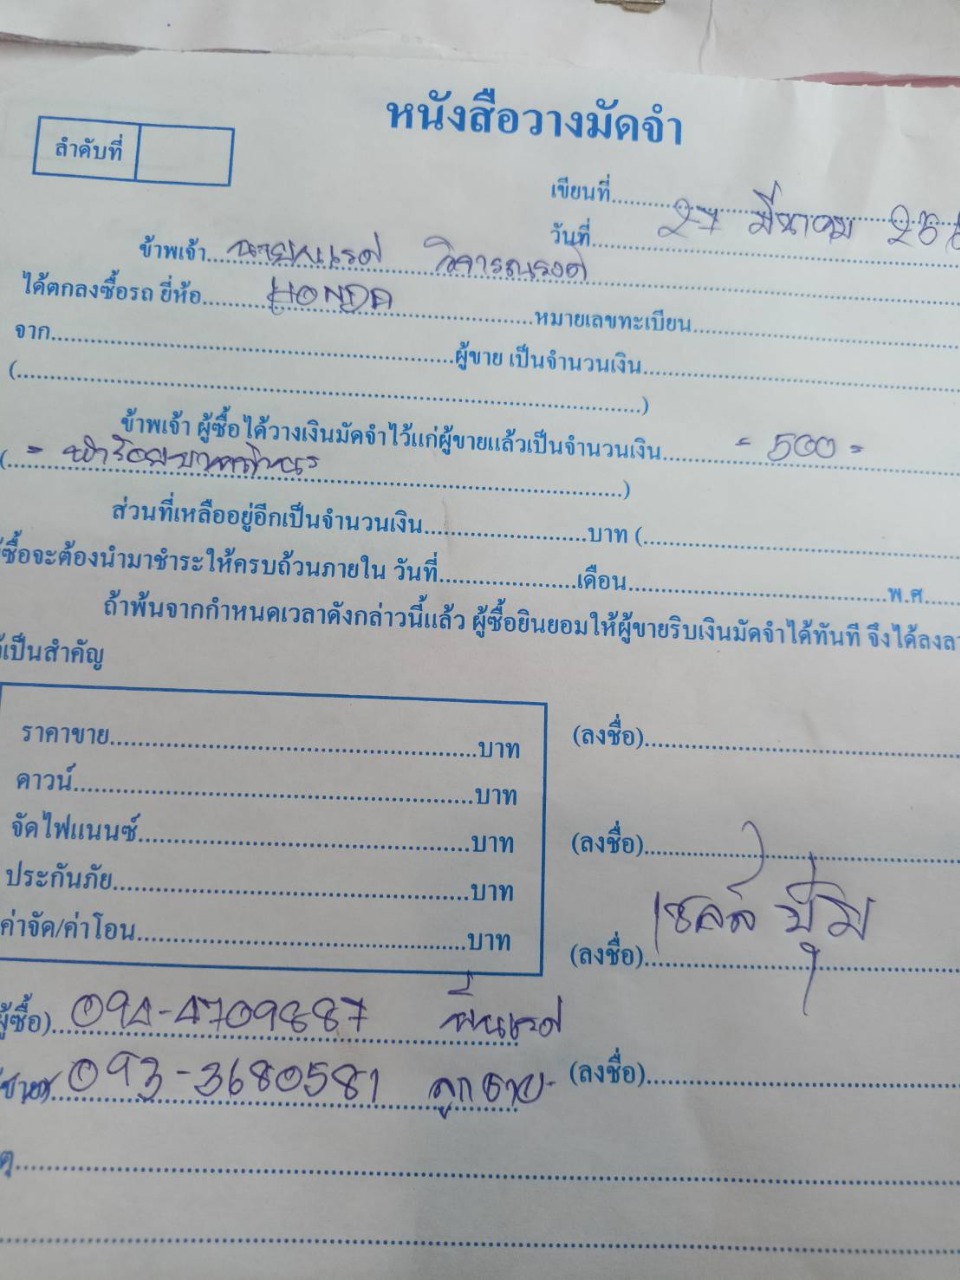 หนังสือวางมัดจำ
ลำดับที่
เขียนที่
วันที่ 27 มีนาคม
ข้าพเจ้า นาย
ได้ตกลงซื้อรถ ยี่ห้อ HONDA หมายเลขทะเบียน
จาก ผู้ขาย เป็นจำนวนเงิน
( )
ข้าพเจ้า ผู้ซื้อได้วางเงินมัดจำไว้แก่ผู้ขายแล้วเป็นจำนวนเงิน = 500 =
( = ห้าร้อยบาทถ้วน )
ส่วนที่เหลืออยู่อีกเป็นจำนวนเงิน บาท (
ซื้อจะต้องนำมาชำระให้ครบถ้วนภายใน วันที่ เดือน พ.ศ.
ถ้าพ้นจากกำหนดเวลาดังกล่าวนี้แล้ว ผู้ซื้อยินยอมให้ผู้ขายริบเงินมัดจำได้ทันที จึงได้ลง
เป็นสำคัญ
ราคาขาย บาท
ดาวน์ บาท
จัดไฟแนนซ์ บาท
ประกันภัย บาท
ค่าจัด/ค่าโอน บาท
(ลงชื่อ)
(ลงชื่อ)
(ลงชื่อ) เซลล์
ผู้ซื้อ) 094-4709887
093-3680581 ลูกชาย
(ลงชื่อ)